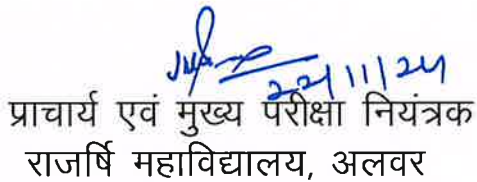 22/11/24
प्राचार्य एवं मुख्य परीक्षा नियंत्रक
राजर्षि महाविद्यालय, अलवर